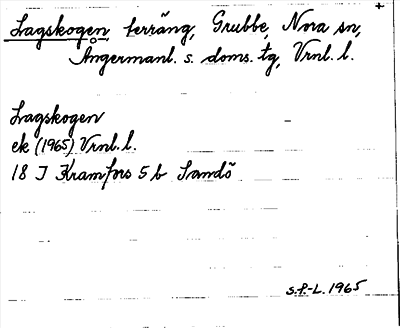 Lagskogen, terräng, Grubbe, Nora sn,
Ångermanl. s. doms. tg, Vrnl. l.
Lagskogen
ek (1965) Vrnl. l.
18 I Kramfors 5 b Sandö
S.P.-L. 1965